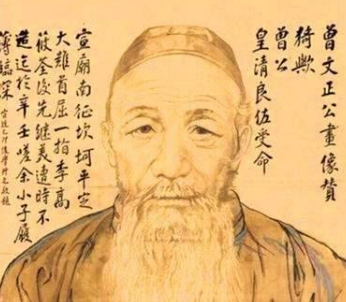 曾文正公畫像贊
猗歟
曾公
皇清良佐受命
宣廟南征坎坷平定
大難首屈一指李高
後先繼美遭時不
造迄於辛壬嗟余小子履
薄臨深